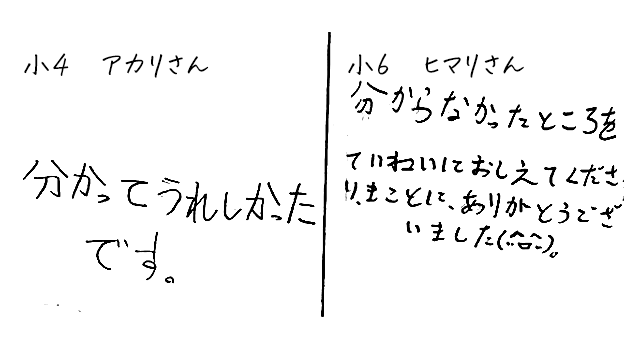 小4　アカリさん
分かってうれしかった
です。
小6　ヒマリさん
分からなかったところを
ていねいにおしえてくださ
り、まことに、ありがとうござ
いました(^□^)。